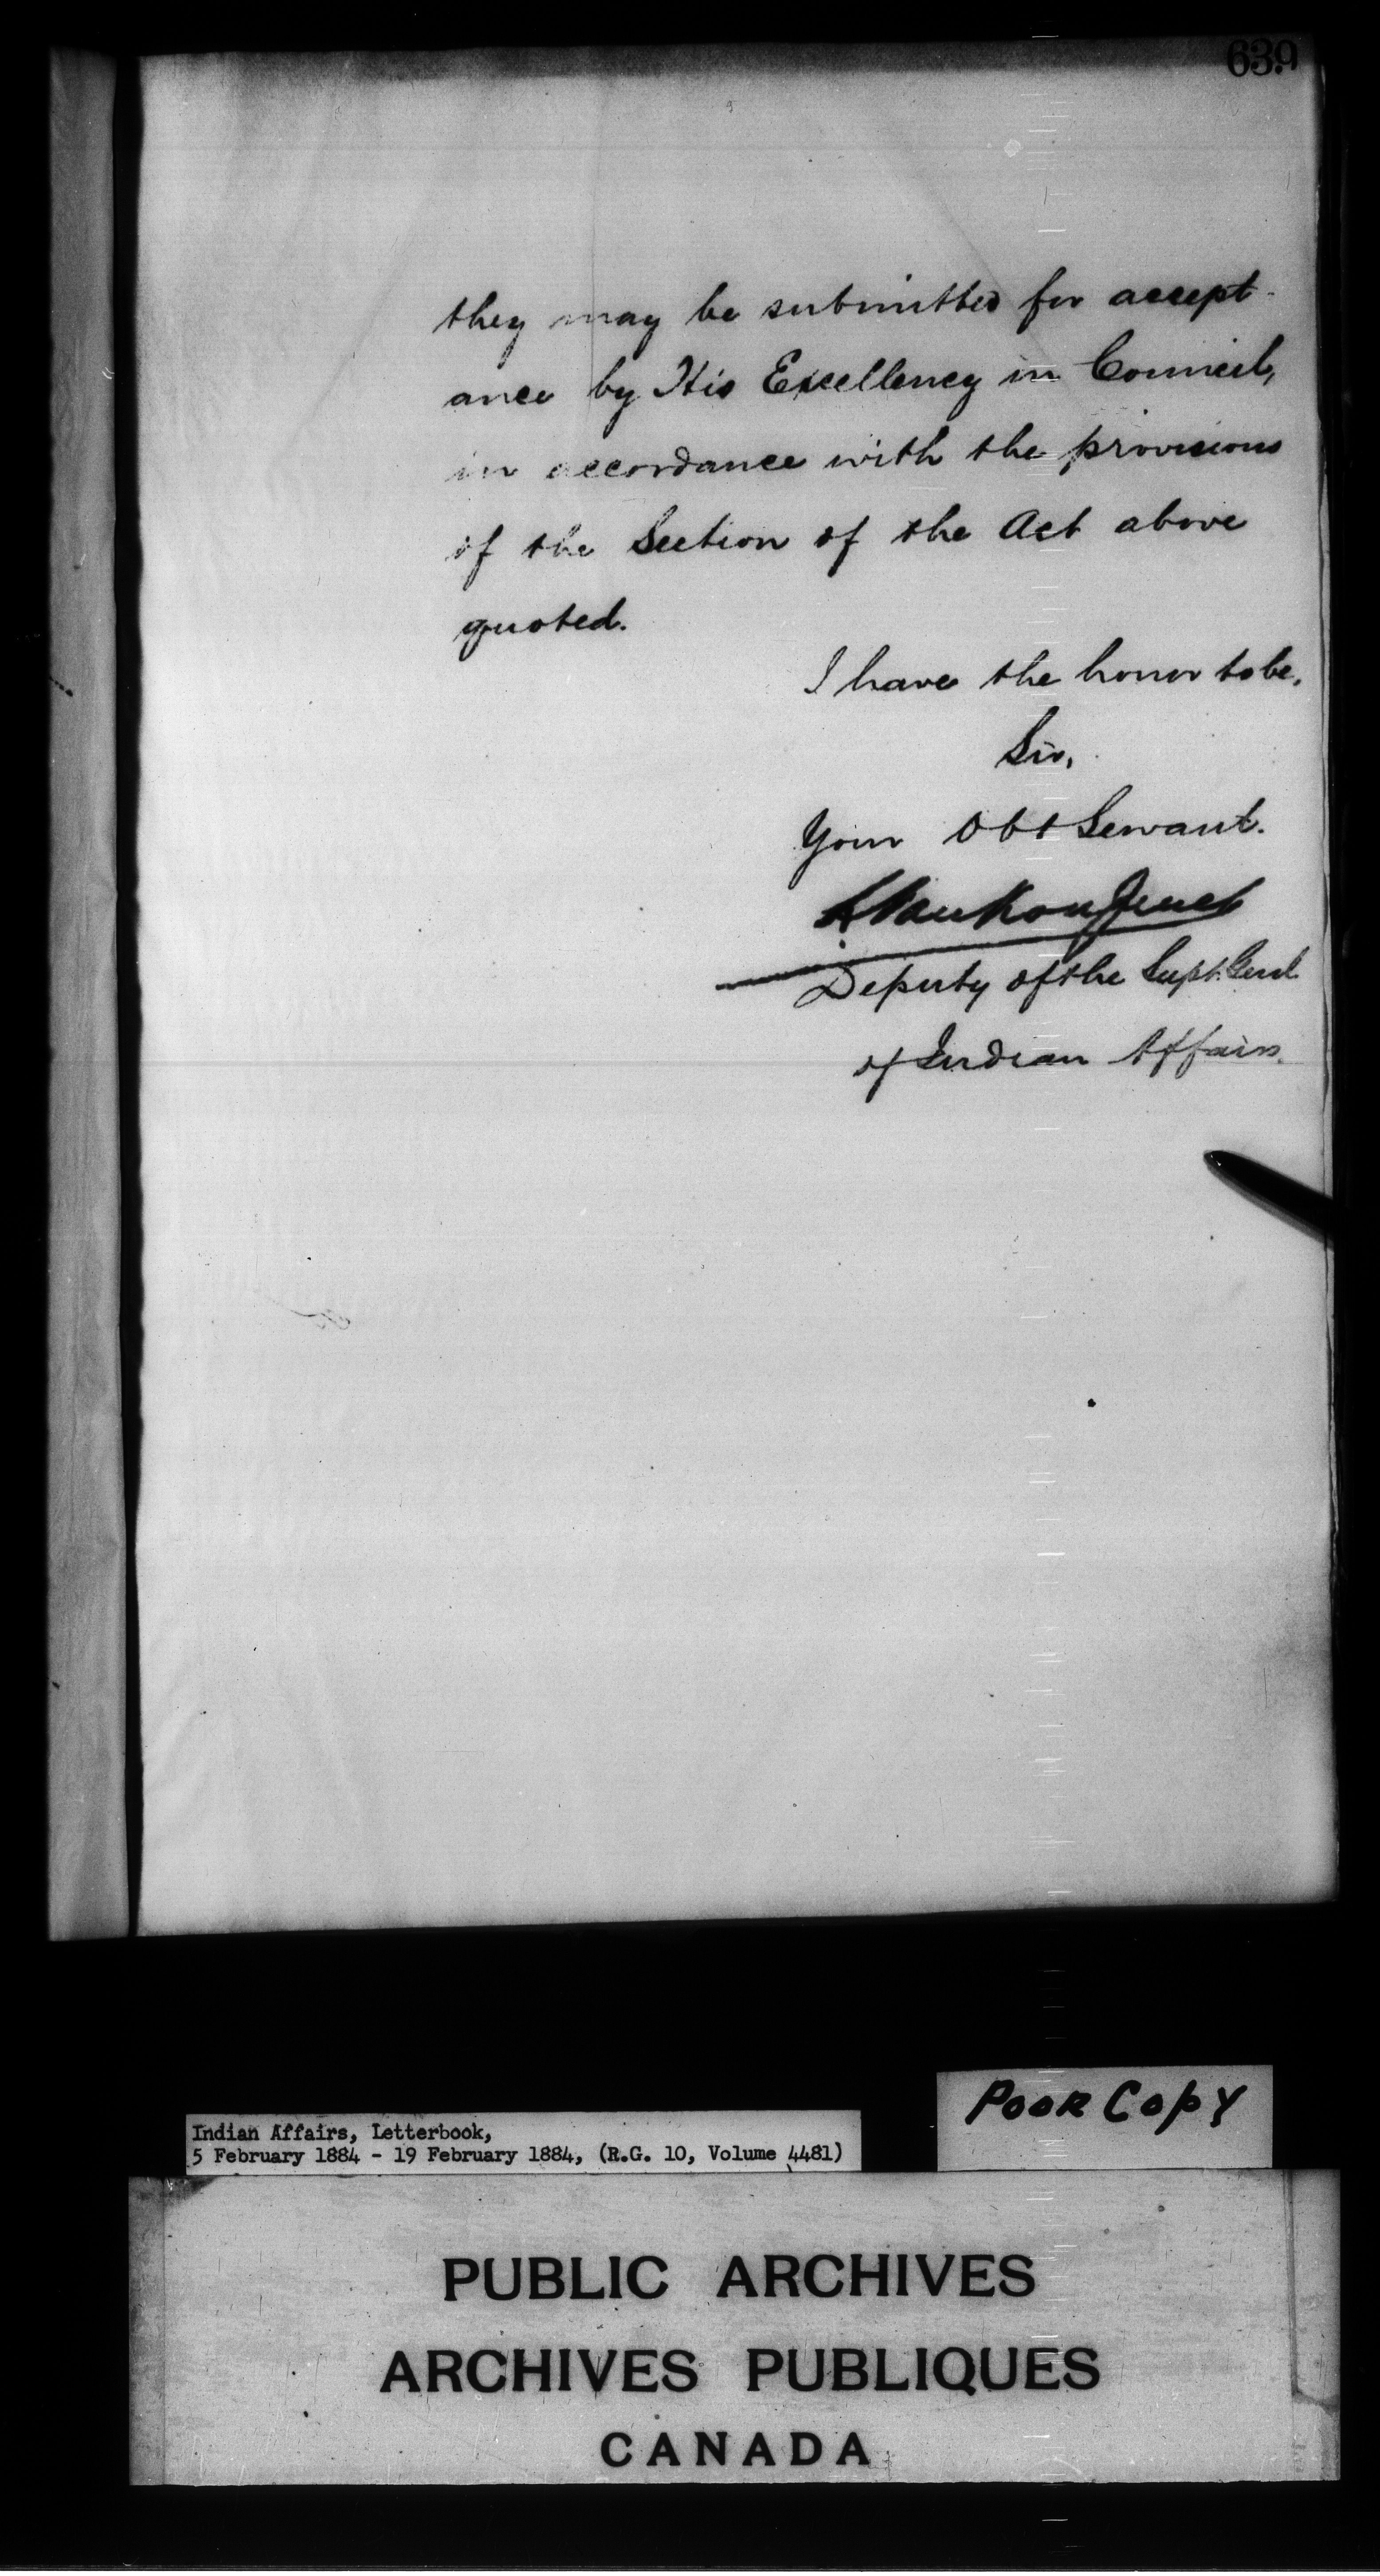 639
they may be submitted for accept-
ance by His Excellency in Council,
in accordance with the provisions
of the Section of the Act above
quoted.
I have the honor to be,
Sir,
Your Obt Servant.
L VanKoughnet
Deputy of the Supt. Genl.
of Indian Affairs.
Indian Affairs, Letterbook,
5 February 1884 - 19 February 1884, (R.G. 10, Volume 4481)
POOR COPY
PUBLIC ARCHIVES
ARCHIVES PUBLIQUES
CANADA